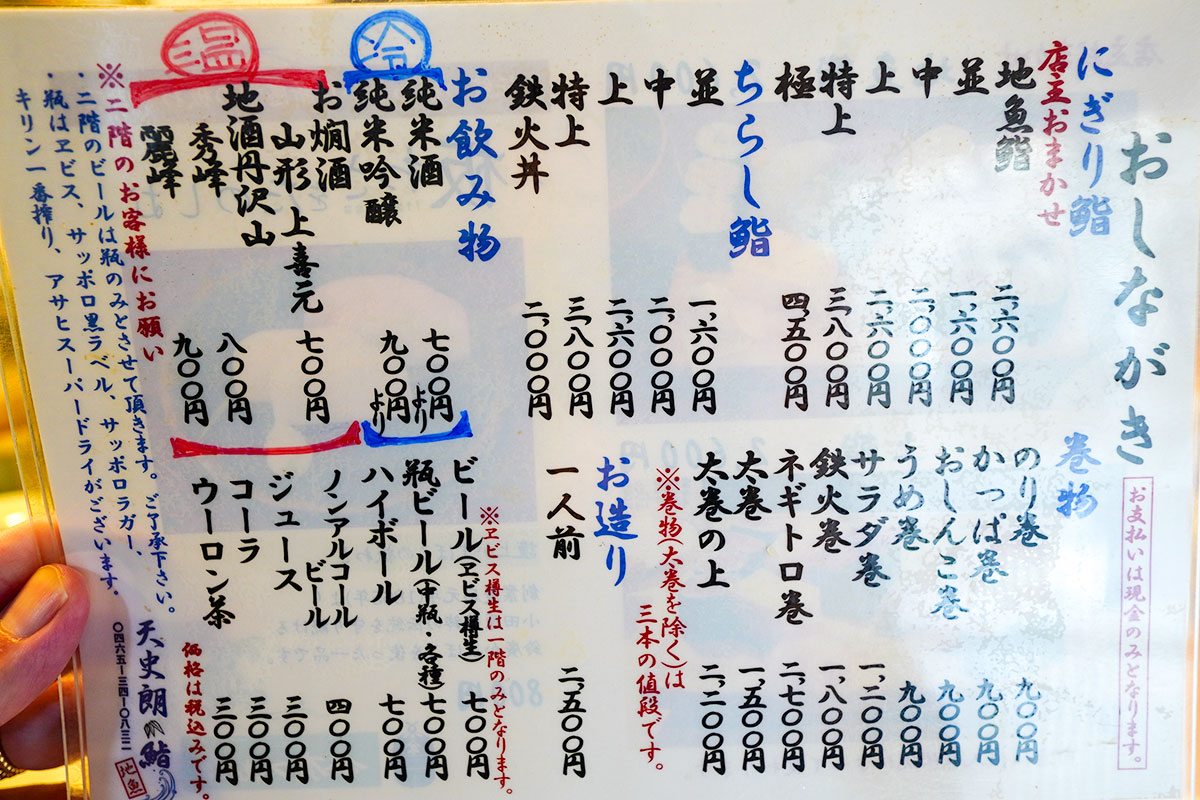 おしながき
お支払いは現金のみとなります。
にぎり鮨
店主おまかせ
地魚鮨 二、六〇〇円
並 一、六〇〇円
中 二、〇〇〇円
上 二、六〇〇円
特上 三、八〇〇円
極 四、五〇〇円
ちらし鮨
並 一、六〇〇円
中 二、〇〇〇円
上 二、六〇〇円
特上 三、八〇〇円
鉄火丼 二、〇〇〇円
お飲み物
冷
純米酒 七〇〇円より
純米吟醸 九〇〇円より
温
お燗酒
山形 上喜元 七〇〇円
地酒丹沢山
秀峰 八〇〇円
麗峰 九〇〇円
巻物
のり巻 九〇〇円
かっぱ巻 九〇〇円
おしんこ巻 九〇〇円
うめ巻 九〇〇円
サラダ巻 一、二〇〇円
鉄火巻 一、八〇〇円
ネギトロ巻 二、七〇〇円
太巻 一、五〇〇円
太巻の上 二、二〇〇円
※巻物(太巻を除く)は
三本の値段です。
お造り
一人前 二、五〇〇円
※ヱビス樽生は一階のみとなります。
ビール(ヱビス樽生) 七〇〇円
瓶ビール(中瓶・各種) 七〇〇円
ハイボール 七〇〇円
ノンアルコール
ビール 四〇〇円
ジュース 三〇〇円
コーラ 三〇〇円
ウーロン茶 三〇〇円
価格は税込みです。
※二階のお客様にお願い
・二階のビールは瓶のみとさせて頂きます。ご了承下さい。
・瓶はヱビス、サッポロ黒ラベル、サッポロラガー、
キリン一番搾り、アサヒスーパードライがございます。
天史朗鮨
〇四六五-三四-〇八三二
地魚